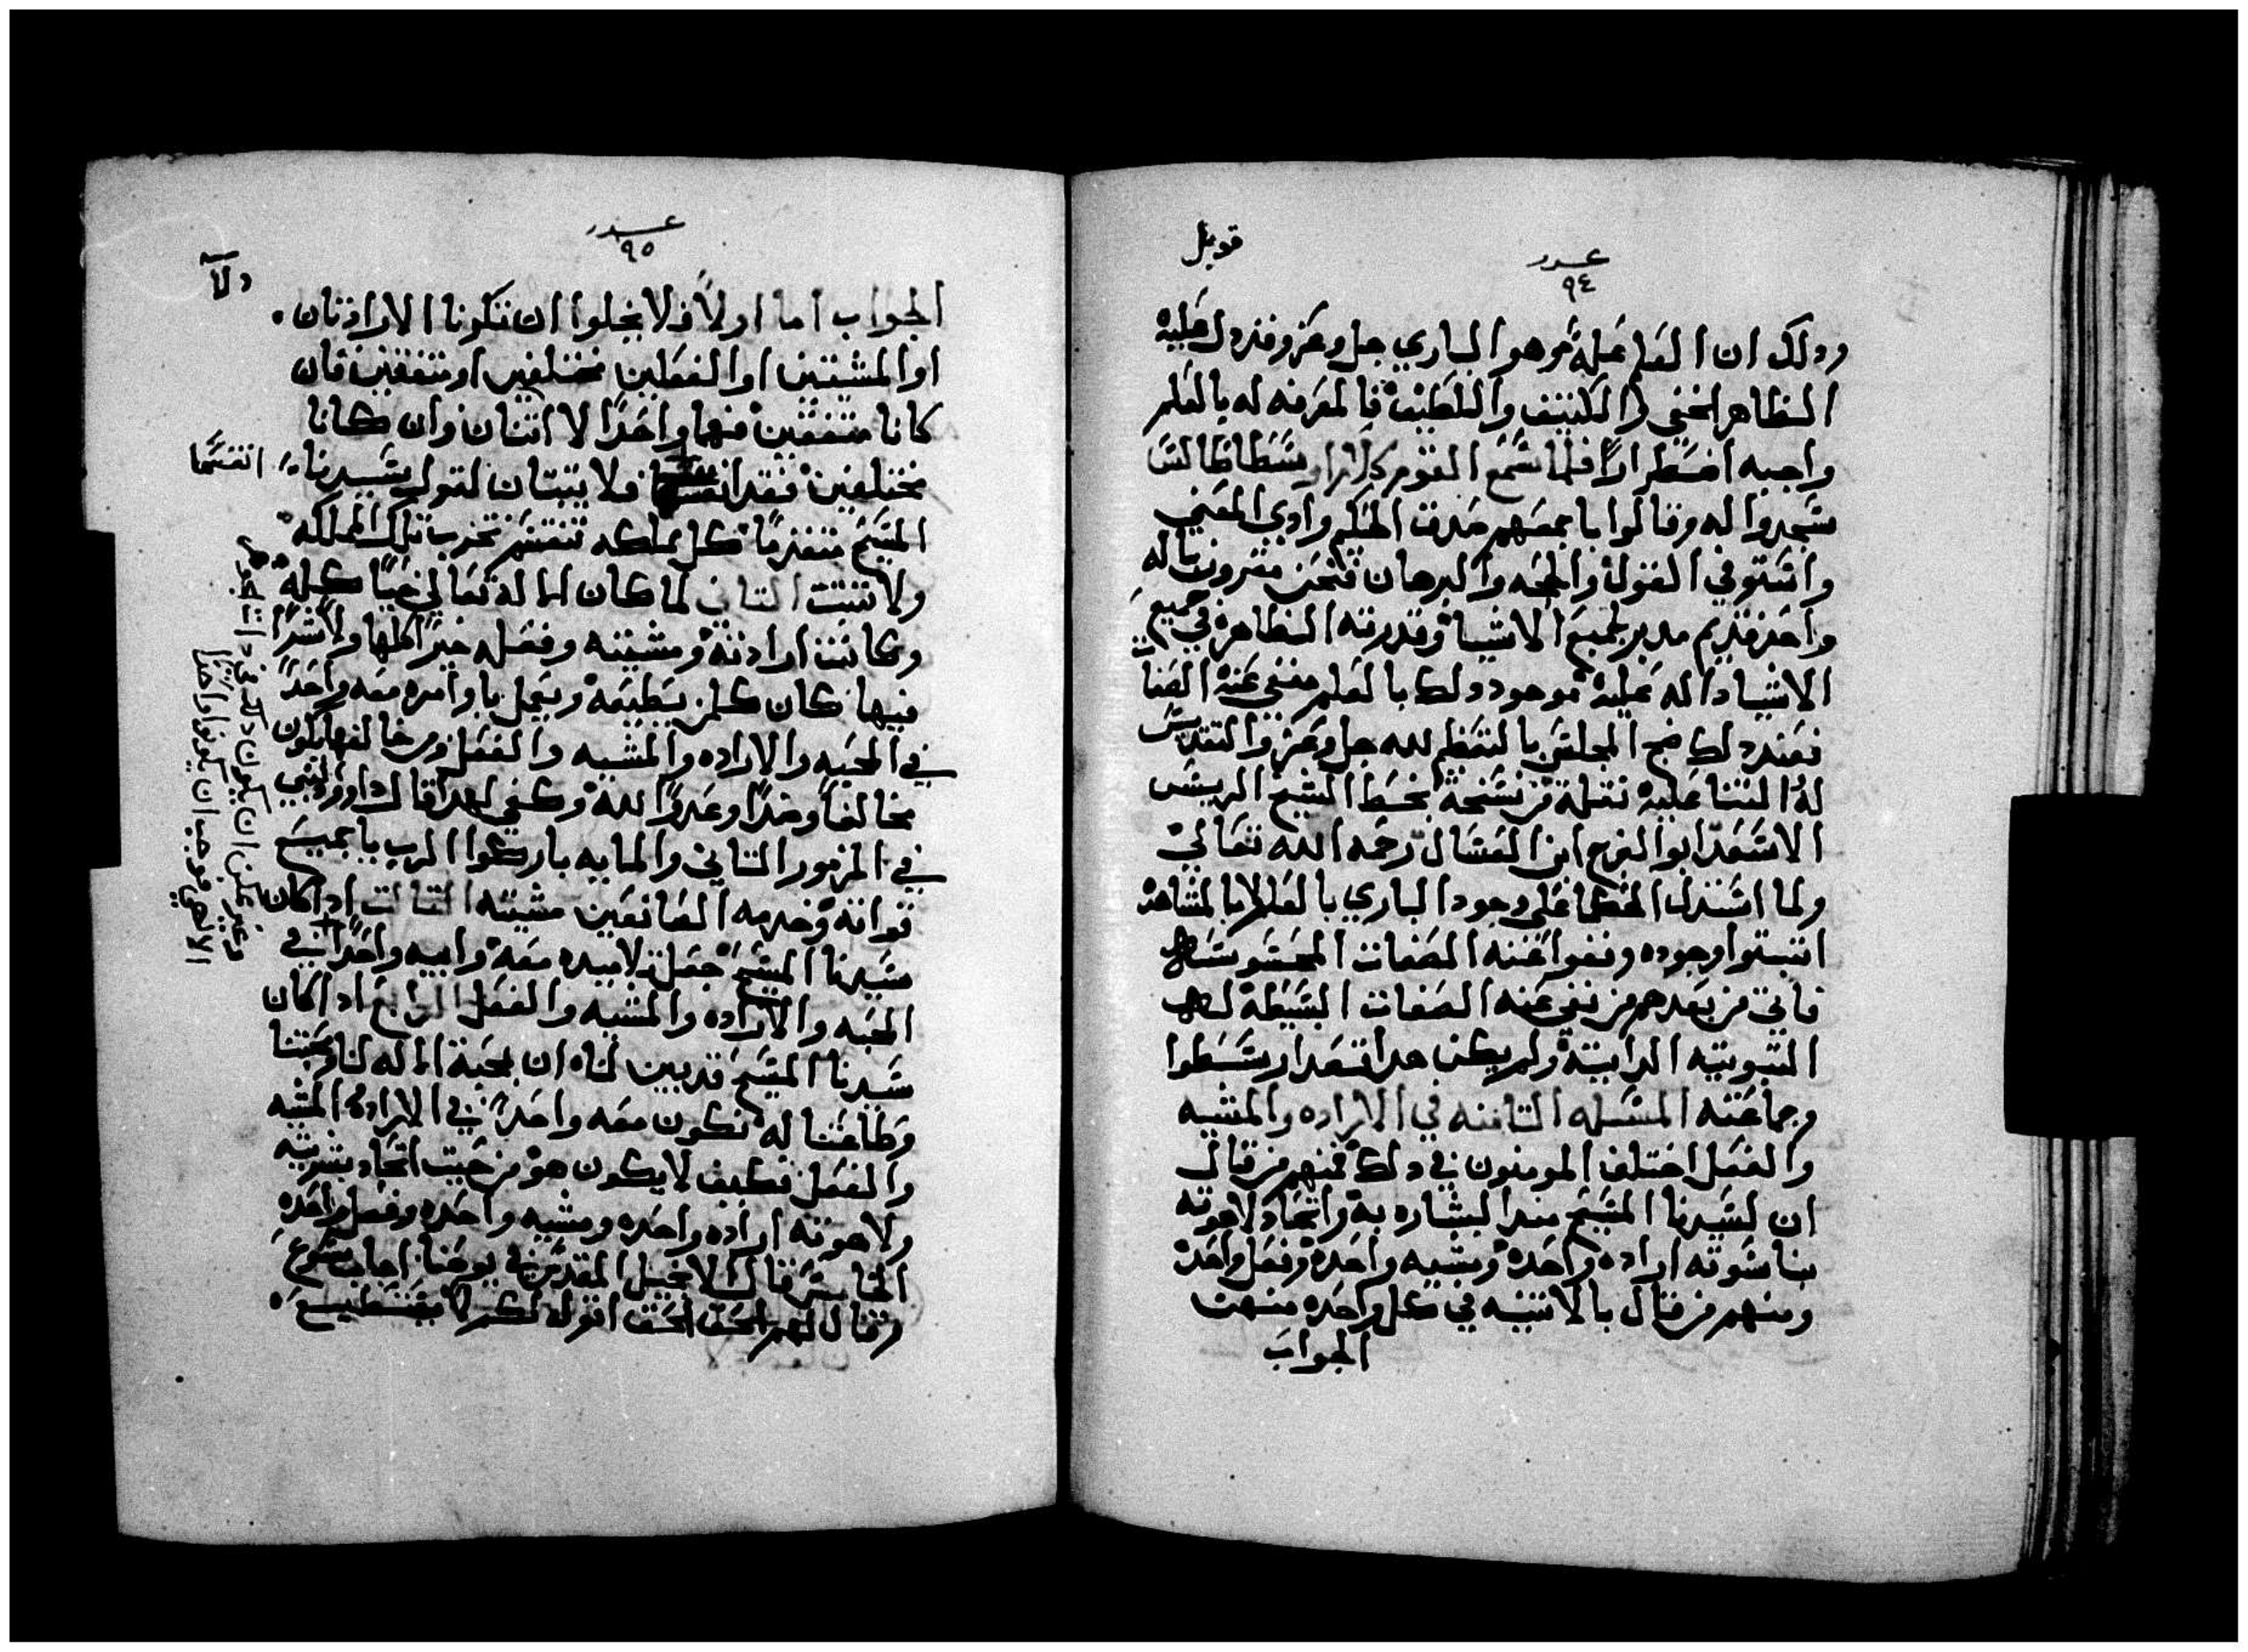 قوبل
عدد
٩٤
ودلك ان العله عله هو الباري جل وعز وقد دل عليه
الظاهر الخفي والكثيف واللطيف فالمعرفه له بالعلم
واجبه اضطراراً فلما سمع القوم كلام ارسطاطاليس
سجدوا له وقالوا باجمعهم صدقت الحكم وادي المعني
واستوفي القول والحجه والبرهان فنحن مقرون باله
واحد قديم مدبر لجميع الاشيا وقدرته الظاهرة في جميع
الاشيا داله عليه موجود ودلك بالعلم منفي عنه الصفات
فعند دلك ضج المجلس بالتعظم لله جل وعز والتقديس
له الثنا عليه نقلة من نسخة بخط الشيخ الريس
الاسعد ابو الفرج ابن العسال رحمه الله تعالي
ولما استدل الحكما علي وجود الباري بالعلم لا بالمشاهده
اتبتوا وجوده ونفوا عنه الصفات المحسوسه
فاتي من بعدهم من نفي عنه الصفات البسيطة
التبوتيه الداتية ولم يكن هدا قصد ارسطوا
وجماعته المسله التامنه في الاراده والمشيه
والفعل اختلف المومنون في دلك فمنهم من قال
ان لسيدنا المسيح مند البشاره به واتحاد لاهوته
بناسوته اراده واحدة ومشيه واحدة وفعل واحد
ومنهم من قال بالاتنينيه في كل واحده منهن
الجواب
عدد
٩٥
الجواب اما اولاً فلا يخلوا ان تكونا الارادتان
او المشيتين او الفعلين مختلفين او متفقين فان
كانا متفقين فهما واحداً لا اتنان وان كانا
مختلفين فقد انقسما فلا يتبتان لقول سيدنا
انقسما
المسيح متقدماً كل مملكه تنقسم تخرب تلك المملكه
ولا تتبت التاني لما كان الاله تعالي غنياً كله
وكانت ارادته ومشيته وفعله خيراً كلها ولا شراً
فيها كان كلمن يطيعه ويعمل باوامره معه واحداً
في المحبه والاراده والمشيه والفعل ومن خالفها يكون
مخالفاً وضداً وعدواً لله وكفي لهدا قال داوود النبي
في المزمور التاني والمايه باركوا الرب يا جميع
قواته وخدمه الصانعين مشيته التالت ادا كان
سيدنا المسيح جعل تلاميده معه وابيه واحداً في
المحبه والاراده والمشيه والفعل الرابع ادا كان
سيدنا المسيح قد بين لنا ان بمحبة الاله لنا ومحبتنا
وطاعتنا له نكون معه واحداً في الاراده المشيه
والفعل فكيف لا يكون هو من حيت اتحاد بشريته
ولاهوته اراده واحده ومشيه واحده وفعل واحده
الخامس قال الانجيل المقدس في يوحنا اجاب يسوع
وقال لهم الحق الحق اقول لكم لا يستطيع